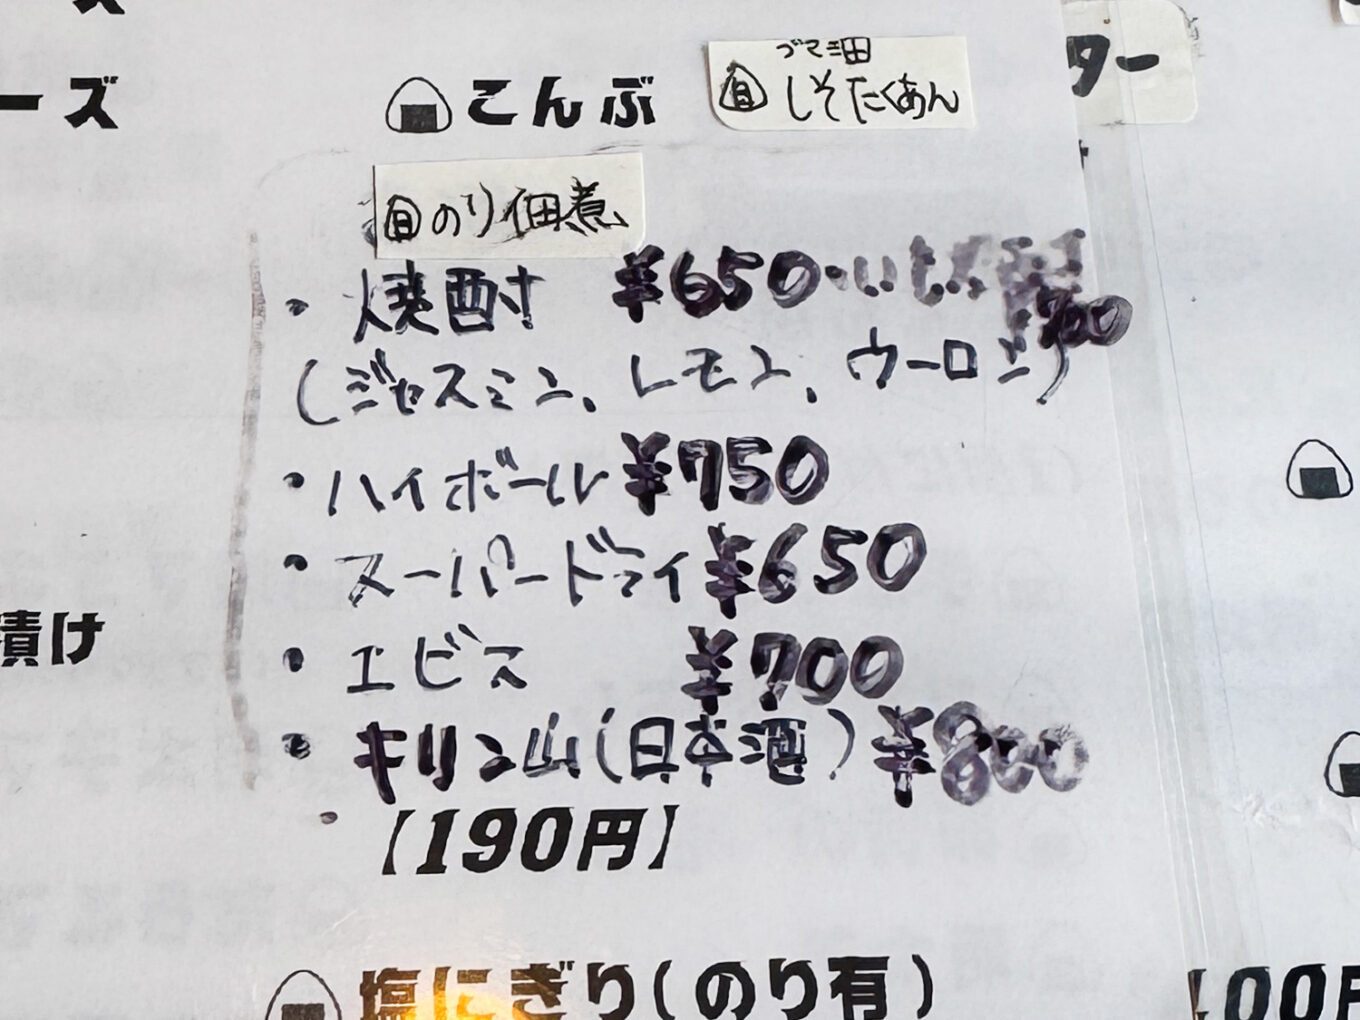 ーズ
こんぶ
ゴマ油
しそたくあん
ター
のり佃煮
・焼酎 ¥650
(ジャスミン、レモン、ウーロン)
・ハイボール ¥750
・スーパードライ ¥650
・エビス ¥700
・キリン山(日本酒) ¥800
漬け
【190円】
塩にぎり(のり有)
00円